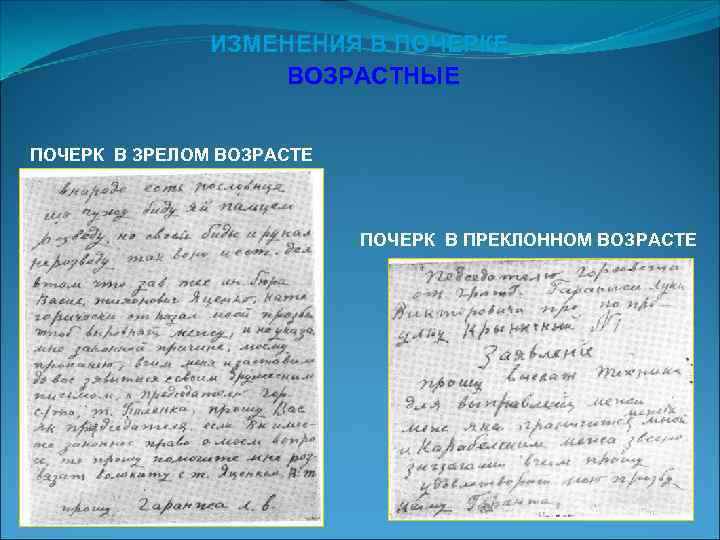 ИЗМЕНЕНИЯ В ПОЧЕРКЕ
ВОЗРАСТНЫЕ
ПОЧЕРК В ЗРЕЛОМ ВОЗРАСТЕ
внароде есть пословица
що чужу биду я й пальцем
розведу, но своей биды и рукам
нерозведу так воно и есть. дел
втом что зав тех ин. бюра
Васил Тихонович Яценко, кате
горически отказал моей прозьб
чтоб выровнять межу, и не указа
мно законной причине, моему
прошению, всим меня изаставил
до вас зявиться своим дружесним
писмом, к председателю гор
т. Поленка, прошу Вас
як председателя если Вы имее
те законное право о моем вопро
се, то прошу помогите мне роз
вязат волокиту с т. Яценком. В т
прошу Гаранжа Л. В.
ПОЧЕРК В ПРЕКЛОННОМ ВОЗРАСТЕ
Педседателю горсовета
от гражд. Гаранжи луки
Викторовича про по пр
улку Крыничний №
Заявление
прошу выслат техника
для выправлений межи
межи
меж яка граничит мной
и Карабельским межа звесно
зигзагами вчем прошу
удовлетворить мою прозбу
Гаранжа